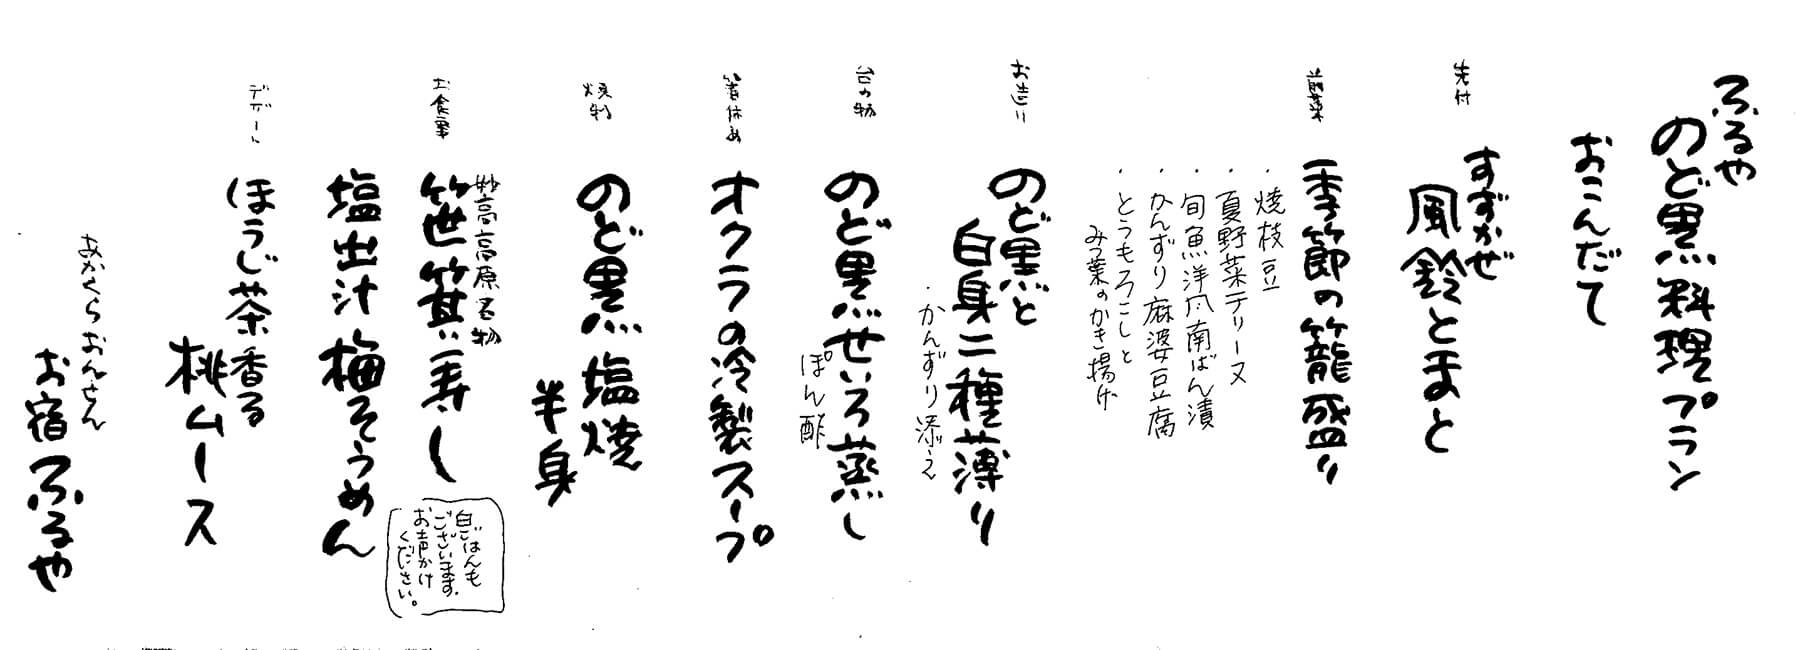 ふるや
のど黒料理プラン
おこんだて
先付
すずかぜ
風鈴とまと
前菜
季節の籠盛り
・焼枝豆
・夏野菜テリーヌ
・旬魚洋風南ばん漬
・かんずり麻婆豆腐
・とうもろこしと
みつ葉のかき揚げ
お造り
のど黒と
白身二種薄造り
・かんずり添え
台の物
のど黒せいろ蒸し
ぽん酢
箸休め
オクラの冷製スープ
焼物
のど黒塩焼
半身
お食事
妙高高原名物
笹箕寿し
白ごはんも
ございます。
お声かけ
ください。
塩出汁梅そうめん
デザート
ほうじ茶香る
桃ムース
あかくらおんせん
お宿ふるや